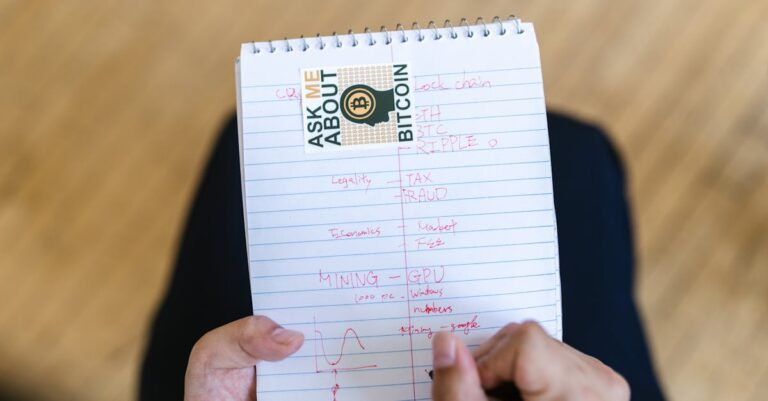 ASK ME
ABOUT
BITCOIN
lock chain
ETH
BTC
RIPPLE
Legality - TAX
- FRAUD
Economics - Market
- FEE
MINING - GPU
1000 PC - Windows
numbers
Mining - google